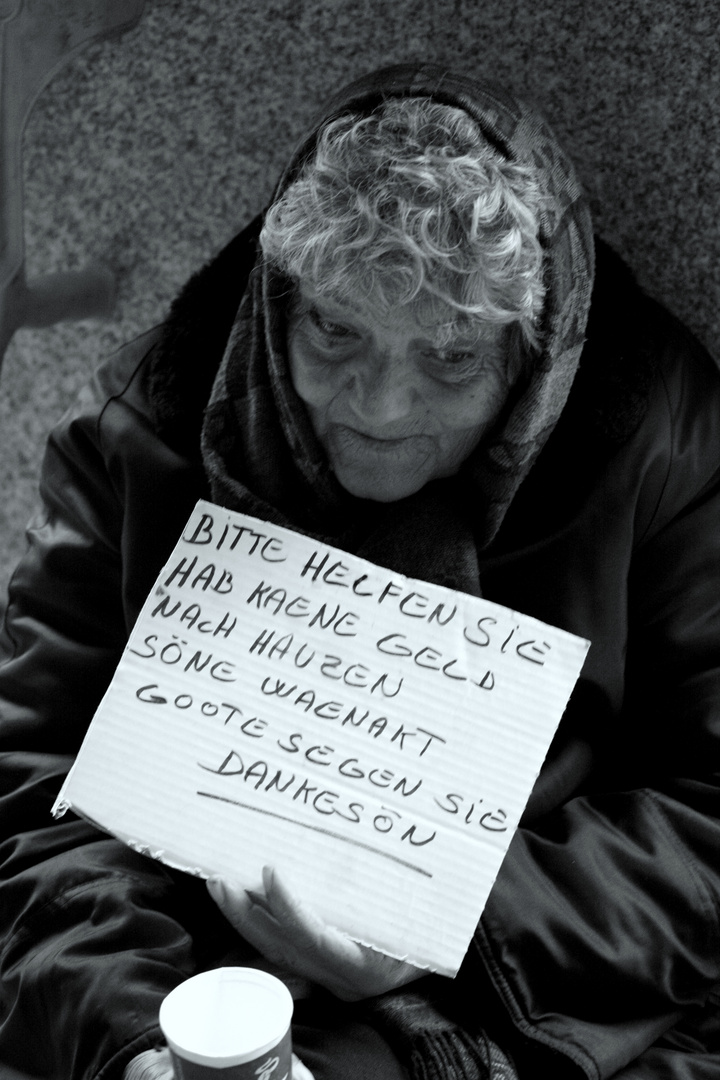 BITTE HELFEN SIE
HAB KAENE GELD
NACH HAUZEN
SÖNE WAENAKT
GOOTE SEGEN SIE
DANKESÖN